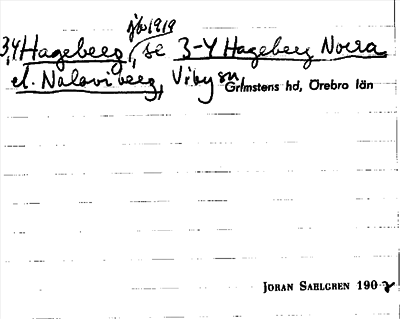 jbr 1919
3,4 Hageberg, se 3-4 Hageberg Norra
el. Nalaviberg, Viby sn,
Grimstens hd, Örebro län
JÖRAN SAHLGREN 1902